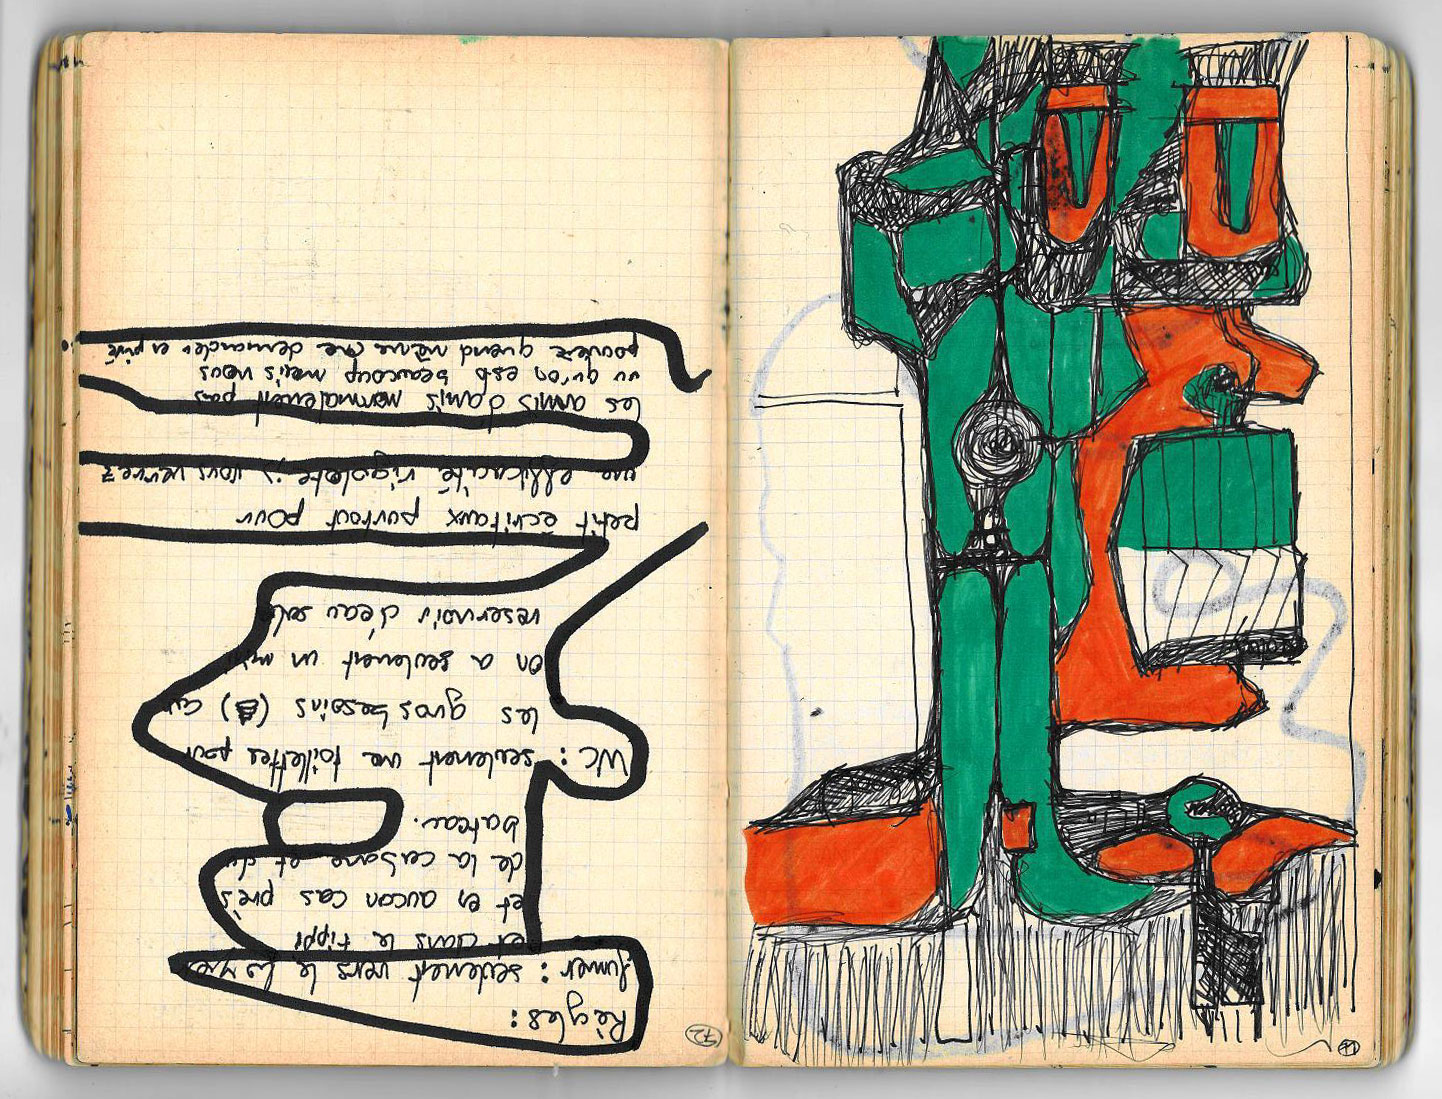 Règles:
fumer: seulement vers le foyer
et dans le tippi
et en aucon cas près
de la cabane et du
bateau.
WC: seulement une toilettes pour
les gros besoins ( ) car
on a seulement un mini
reservoir d'eau sale
petit écritaux partout pour
une efficacité rigolote ;) vous verrez
les amis d'amis normalement pas
vu qu'on est beaucoup mais vous
pouvez quand même me demander en privé
72
71